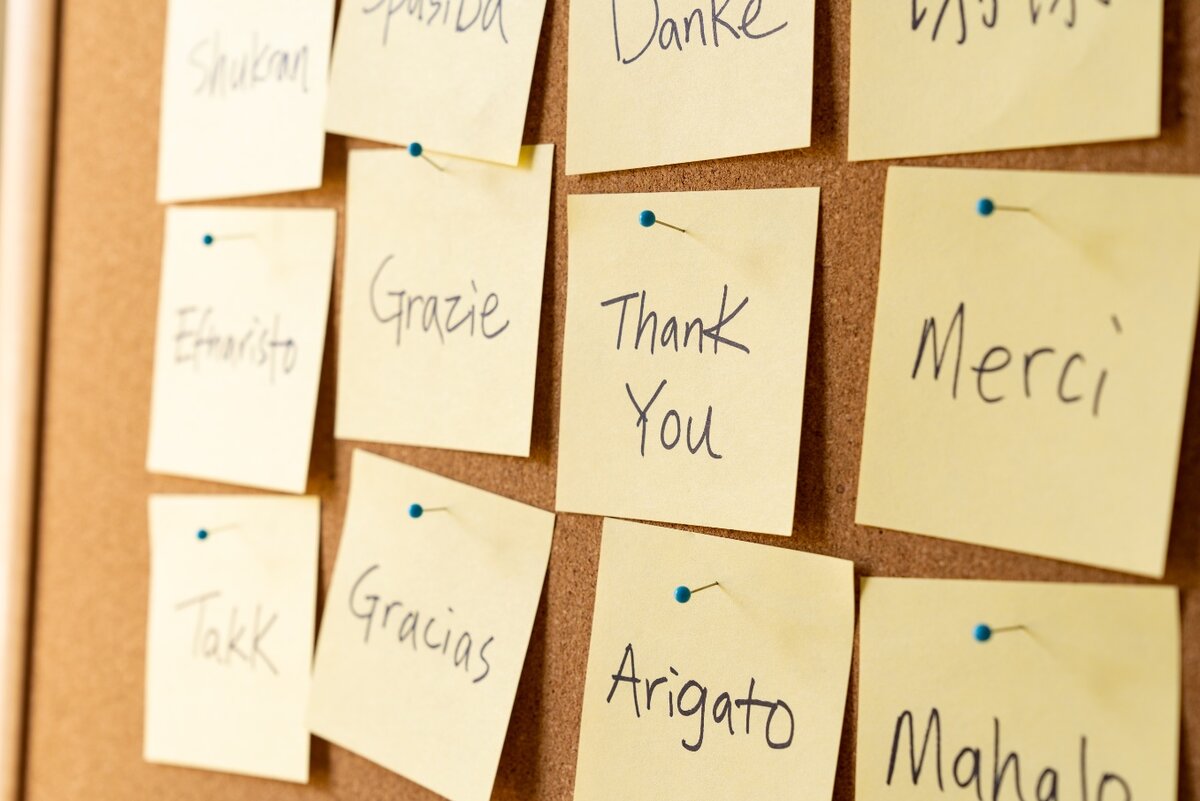 Shukran
Spasiba
Danke
Efharisto
Grazie
Thank
You
Merci
Takk
Gracias
Arigato
Mahalo